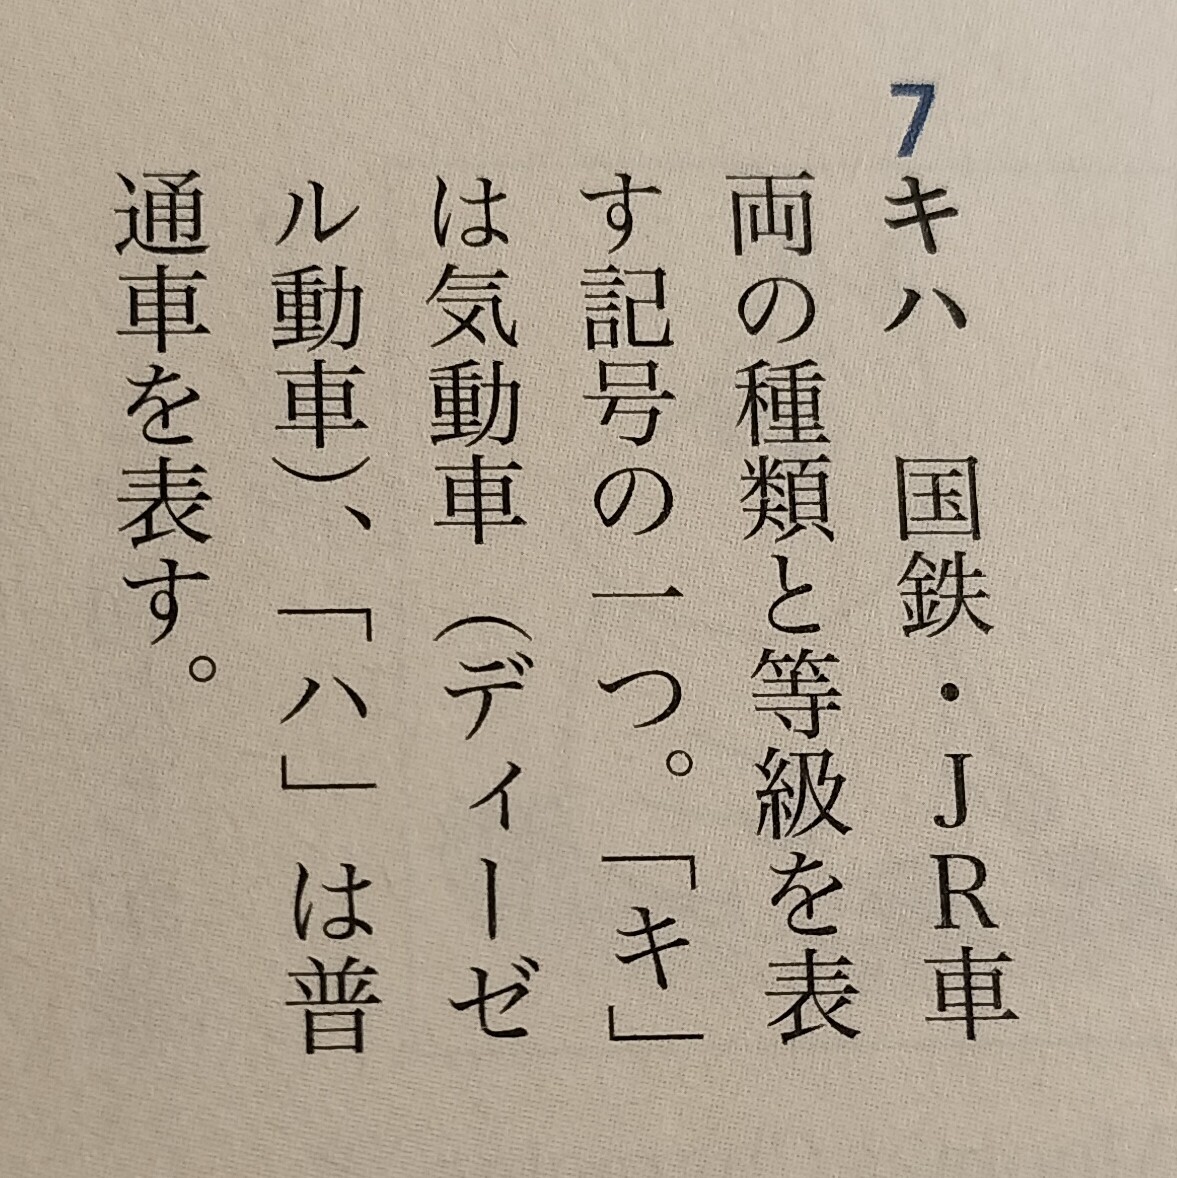 7 キハ　国鉄・ＪＲ車
両の種類と等級を表
す記号の一つ。「キ」
は気動車（ディーゼ
ル動車）、「ハ」は普
通車を表す。